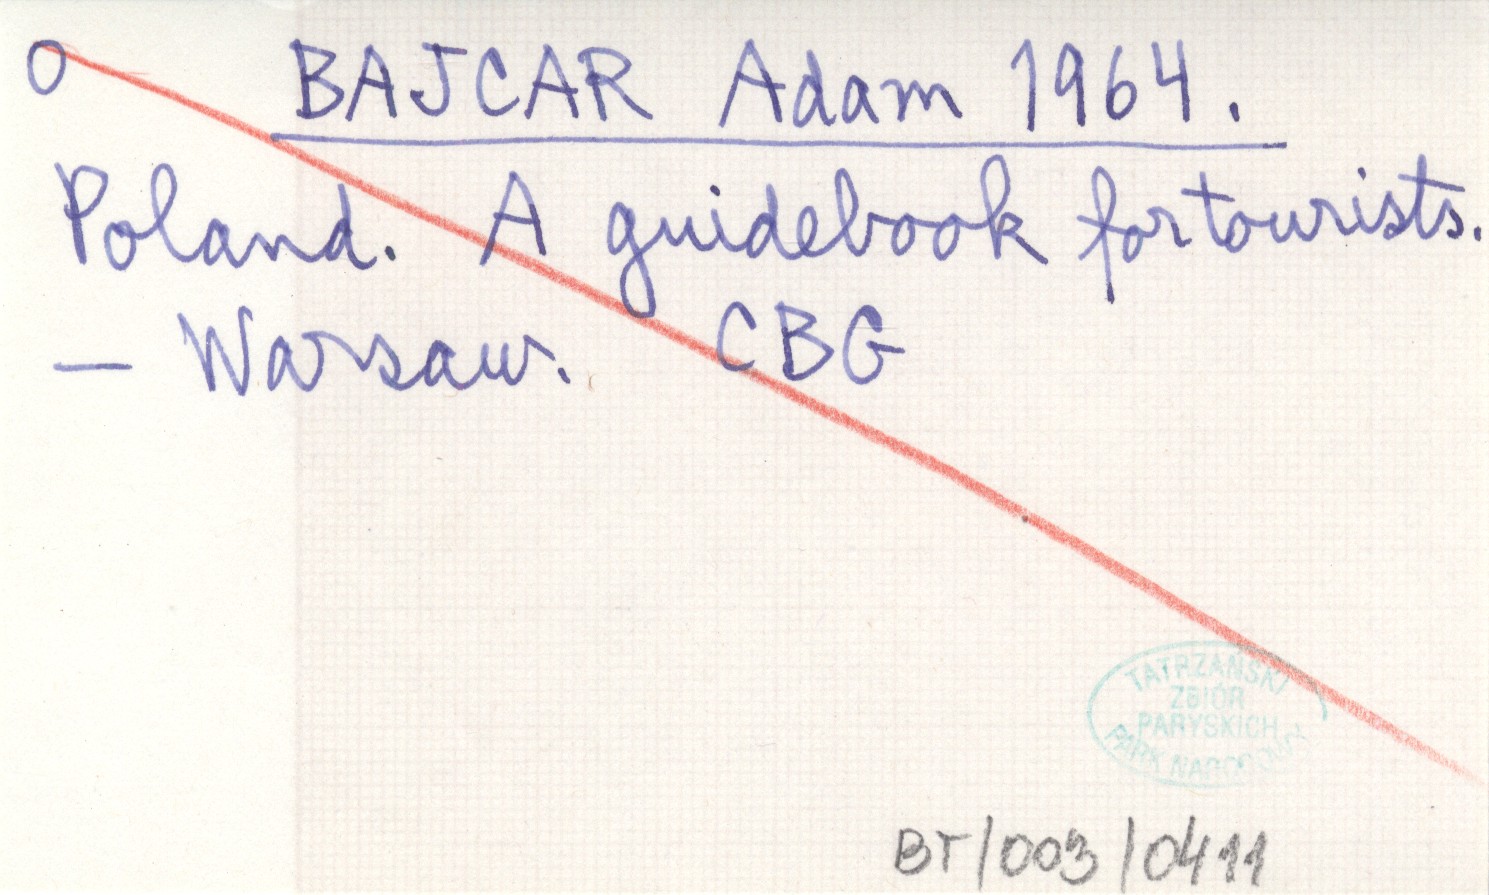 O BAJCAR Adam 1964.
Poland. A guidebook for tourists.
— Warsaw. CBG
TATRZAŃSKI
ZBIÓR
PARYSKICH
PARK NARODOWY
BT/003/0411